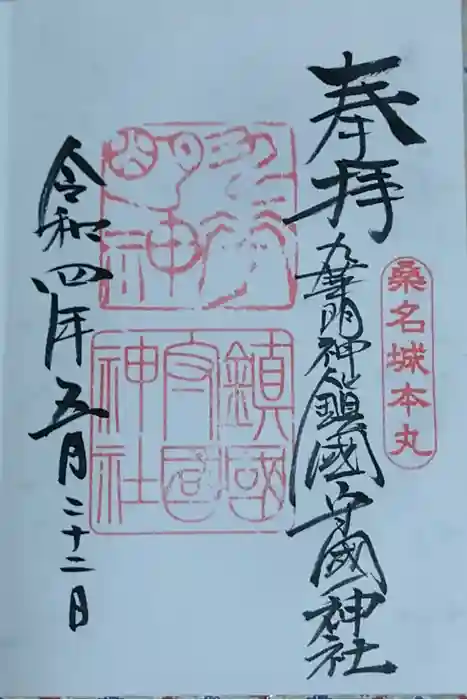 桑名城本丸
奉拝
九華明神鎮國守國神社
九華明神
鎮國守國神社
令和四年五月二十二日